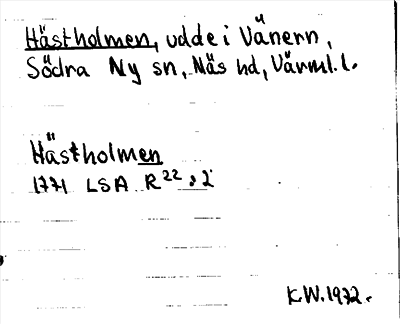 Hästholmen, udde i Vänern,
Södra Ny sn, Näs hd, Värml. l.
Hästholmen
1771 LSA R22:2
K.W. 1972.